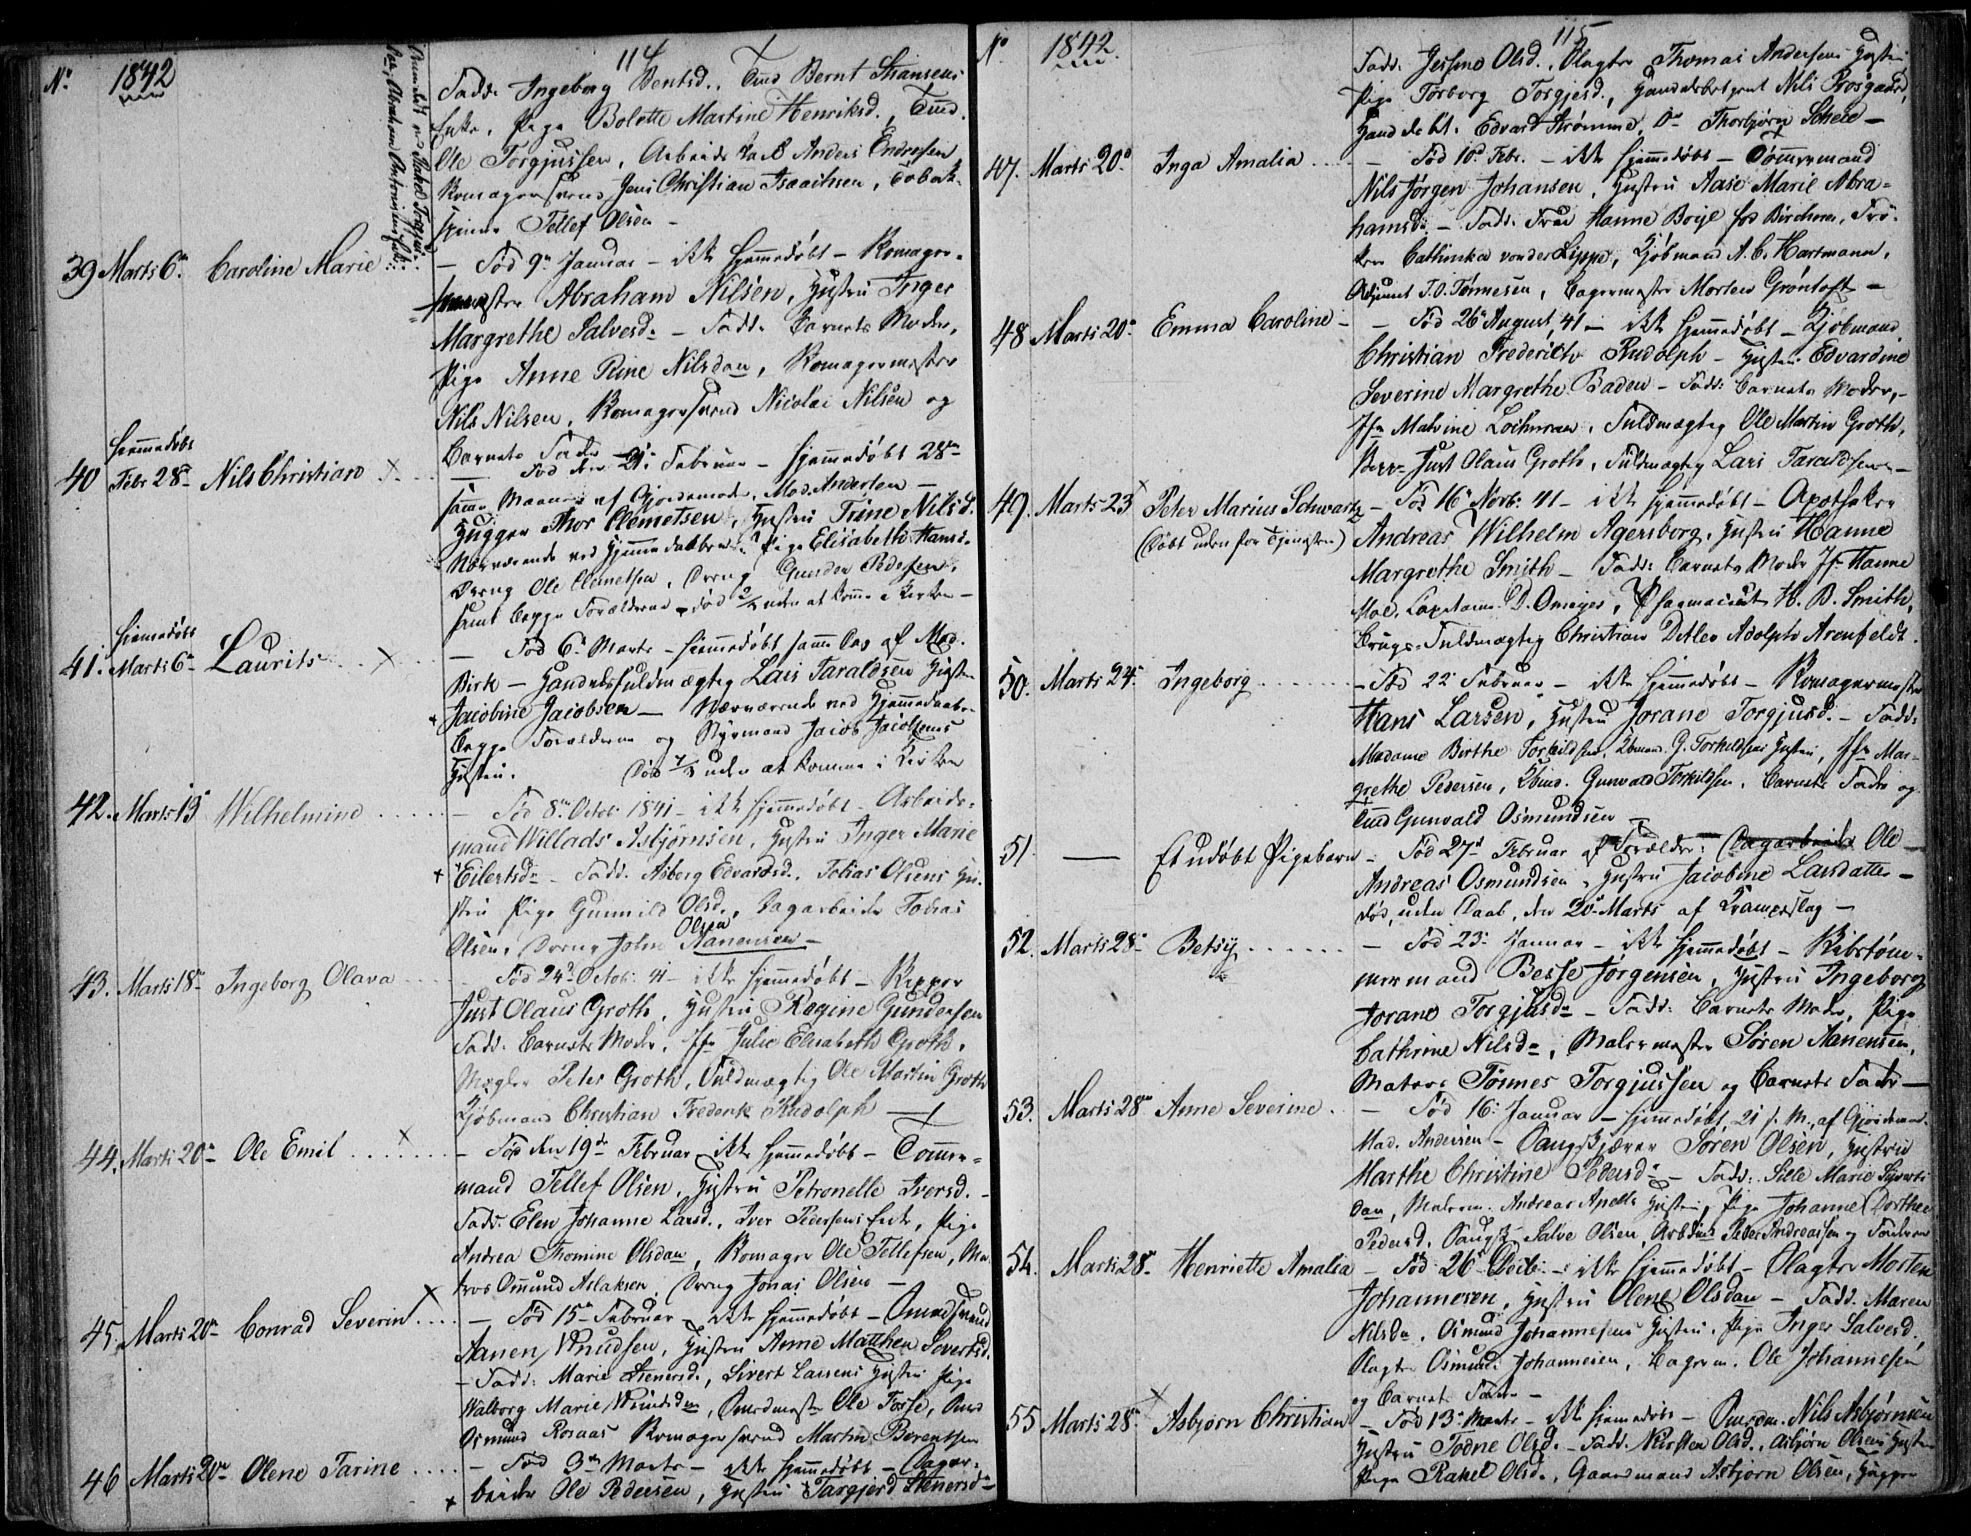 114
No 1842
Fadd: Ingeborg Berntsd., Bernt Hansens
Enke, Pige Bolette Martine Henriksd.,
Ole Torgjussen, Arbeids Anders Endresen
Kornagersvend Jens Christian Isaachsen, Tobak-
spinder Tellef Olsen -
39 Marts 6te Caroline Marie
- Fød 9de Januar - ikke hjemmedøbt - Kornager-
mester Abraham Nilsen, Hustru Inger
Margrethe Salvesd. - Fadd: Barnets Moder,
Pige Anne Rine Nilsdan, Kornagermester
Nils Nilsen, Kornagersvend Nicolai Nilsen og
Barnets Fader
hjemmedøbt
40 Febr 28de Nils Christian X
Fød den 21de Februar - hjemmedøbt 28de
samme Maaned af Gjordemoder, Mad. Andersen -
Hugger Thor Clemetsen, Hustru Trine Nilsd.
Nærværende ved Hjemmedaaben: Pige Elisabeth Hansd.
Dreng Ole Clemetsen, Dreng Gunder Pedersen,
samt begge Forældrene - død 2/3 uden at komme i Kirken -
hjemmedøbt
41. Marts 6te Laurits X
- Fød 6te Marts - hjemmedøbt samme Dag af Mad.
Birk - Handelsfuldmægtig Lars Taraldsen Hustru
Jacobine Jacobsen - Nærværende ved Hjemmedaaben
begge Forældrene og Styrmand Jacob Jacobsens
Hustru. Død 7/3 uden at komme i Kirken
42. Marts 13 Wilhelmine
- Fød 8de Octob: 1841 - ikke hjemmedøbt - Arbeids-
mand Willads Asbjørnsen, Hustru Inger Marie
Eilertsd. - Fadd: Asborg Edvardsd., Tobias Olsens Hu-
stru Pige Gunnild Olsd., Dagarbeider Tobias
Olsen, Dreng John Aanensen - Olsen
43. Marts 18de Ingeborg Olava
Fød 24de Octob: 41 - ikke hjemmedøbt - Skipper
Just Olaus Groth, Hustru Ragine Gundersen
Fadd: Barnets Moder, Jfr Julie Elisabeth Groth,
Mægler Peter Groth, Fuldmægtig Ole Martin Groth
Kjøbmand Christian Frederik Rudolph
44. Marts 20de Ole Emil X
- Fød den 19de Februar - ikke hjemmedøbt - Tømmer-
mand Tellef Olsen, Hustru Petronelle Iversd. -
Fadd: Elen Johanne Larsd., Iver Pedersens Enke, Pige
Andrea Thomine Olsdan, Kornager Ole Tellefsen, Ma-
tros Omund Aslaksen, Dreng Jonas Olsen -
45. Marts 20de Conrad Severin X
- Fød 15de Februar - ikke hjemmedøbt -
Aanen Knudsen, Hustru Anne Malthea Severtsd.
- Fadd: Marie Stenersd., Sivert Larsens Hustru Pige
Walborg Marie Knudsdan, Ole Fosse,
Osmund Rosaas Kornagersvend Martin Berentsen
46 Marts 20de Olene Tarine
- Fød 3de Marts - ikke hjemmedøbt - Dagar-
beider Ole Pedersen, Hustru Targjerd Stenersd.
115
No 1842
Fadd: Jessine Olsd., Slagter Thomas Andersens Hustru
Pige Torborg Torgjesd., Handelsbetjent Nils Rosgaard,
Handelsbt. Edvart Strømme, Do Thorbjørn Scheie -
47. Marts 20de Inga Amalia
- Fød 10de Febr. - ikke hjemmedøbt - Tømmermand
Nils Jørgen Johansen, Hustru Aase Marie Abra-
hamsd: - Fadd: Frue Hanne Boije Birchner, Frø-
ken Cathinka von der Lippe, Kjøbmand A. C. Hartmann,
Adjunct T. O. Tønnesen, Bagermester Morten Grøntoft -
48 Marts 20de Emma Caroline -
- Fød 26de August 41 - ikke hjemmedøbt - Kjøbmand
Christian Frederich Rudolph - Hustru Edvardine
Severine Margrethe Baden - Fadd: Barnets Moder,
Jfr Malvine Lochmann, Fuldmægtig Ole Martin Groth,
Just Olaus Groth, Fuldmægtig Lars Taraldsen -
49. Marts 23 Peter Marius Schwartz
(døbt uden for Tjenesten)
- Fød 16de Novb: 41 - ikke hjemmedøbt - Apotheker
Andreas Wilhelm Agersborg, Hustru Hanne
Margrethe Smith - Fadd: Barnets Moder Jfr Hanne
Moe, Capitain D. Omeyer, Pharmaceut H. B. Smith,
Brugs-Fuldmægtig Christian Detlev Adolph Arenfeldt.
50. Marts 24de Ingeborg
- Fød 22de Februar - ikke hjemmedøbt - Kornagermester
Hans Larsen, Hustru Jorane Torgjusd. - Fadd:
Madame Birthe Torkildsen, Kbmand. G. Torkildsens Hustru, Jfr Mar-
grethe Pedersen, Kbmd. Gunvald Torkildsen, Barnets Fader og
Gunvald Osmundsen
51 — Et udøbt Pigebarn -
Fød 27de Februar af Forældre: Dagarbeider Ole
Andreas Osmundsen, Hustru Jacobine Larsdatter -
død, uden Daab, den 20de Marts af Krampeslag -
52. Marts 28de Betsy
- Fød 23de Januar - ikke hjemmedøbt - Skibstøm-
mermand Besse Jørgensen, Hustru Ingeborg
Jorane Torgjusd. - Fadd: Barnets Moder, Pige
Cathrine Nilsd., Malermester Søren Aanensen,
Matros Tønnes Torgjussen og Barnets Fader -
53. Marts 28de Anne Severine
- Fød 16de Januar - hjemmedøbt 21 s. M. af Gjordemoder
Mad. Andersen - Søren Olsen, Hustru
Marthe Christine Pedersd. - Fadd: Sille Marie Syverts-
dan, Andreas Apelts Hustru, Pige Johanne Dorthea
Pedersd. Salve Olsen, Arbdmd Peder Andreassen og Faderen
54. Marts 28de Henriette Amalia
- Fød 26de Decb: - ikke hjemmedøbt - Slagter Morten
Johannesen, Hustru Olene Olsdan - Fadd. Maren
Nilsdn, Osmund Johannesens Hustru, Pige Inger Salvesd.
Slagter Osmund Johannesen, Bagerm. Ole Johannesen
og Barnets Fader -
55 Marts 28de Asbjørn Christian X
- Fød 13de Marts - ikke hjemmedøbt - Nils Asbjørnsen
Hustru Todne Olsd. - Fadd: Kirsten Olsd., Asbjørn Olsens Hustru
Pige Rakel Olsd., Gaardmand Asbjørn Olsen, Hugger